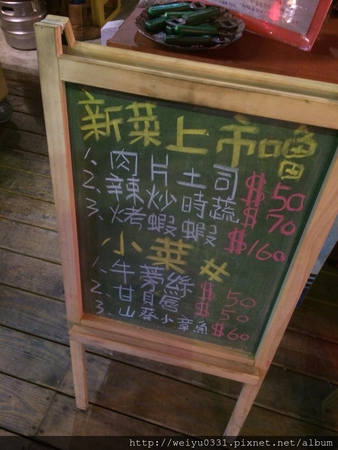 新菜上市嚕
1、肉片土司 $50
2、辣炒時蔬 $70
3、烤蝦蝦 $160
小菜#
1、牛蒡絲 $50
2、甘貝唇 $50
3、山藥小章魚 $60
http://weiyu0331.pixnet.net/album